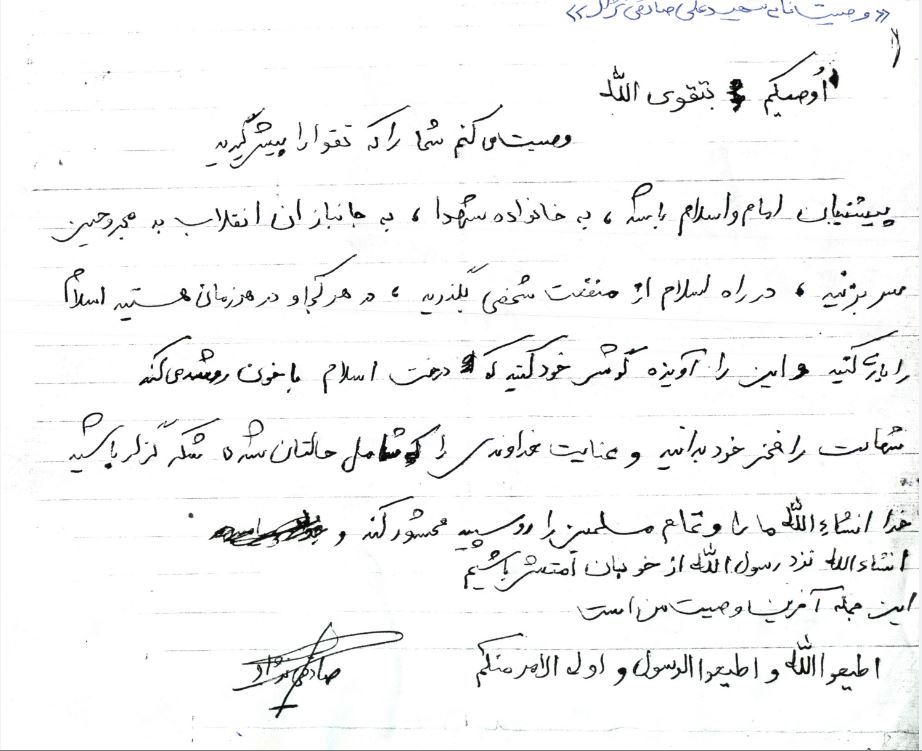 «وصیتنامه شهید علی صادقی نژاد»
۱
اُوصیکم بتقوی الله
وصیت می کنم شما را که تقوا را پیش گیرید
پیشتیبان امام و اسلام باشید ، به خانواده شهدا ، به جانبازان انقلاب به مجروحین
سر بزنید ، در راه اسلام از منفعت شخصی بگذرید ، در هر کجا و در هر زمانی هستید اسلام
را یاری کنید و این را آویزه گوش خود کنید که درخت اسلام با خون رشد می کند
شهادت را فخر خود بدانید و عنایت خداوندی را که شامل حالتان شده شکر گزار باشید
خدا انشاءالله ما را و تمام مسلمین را روسپید محشور کند و
انشاءالله نزد رسول الله از خوبان امتش باشیم
این جمله آخرین وصیت من است
اطیعوا الله و اطیعوا الرسول و اولی الامر منکم
صادقی نژاد